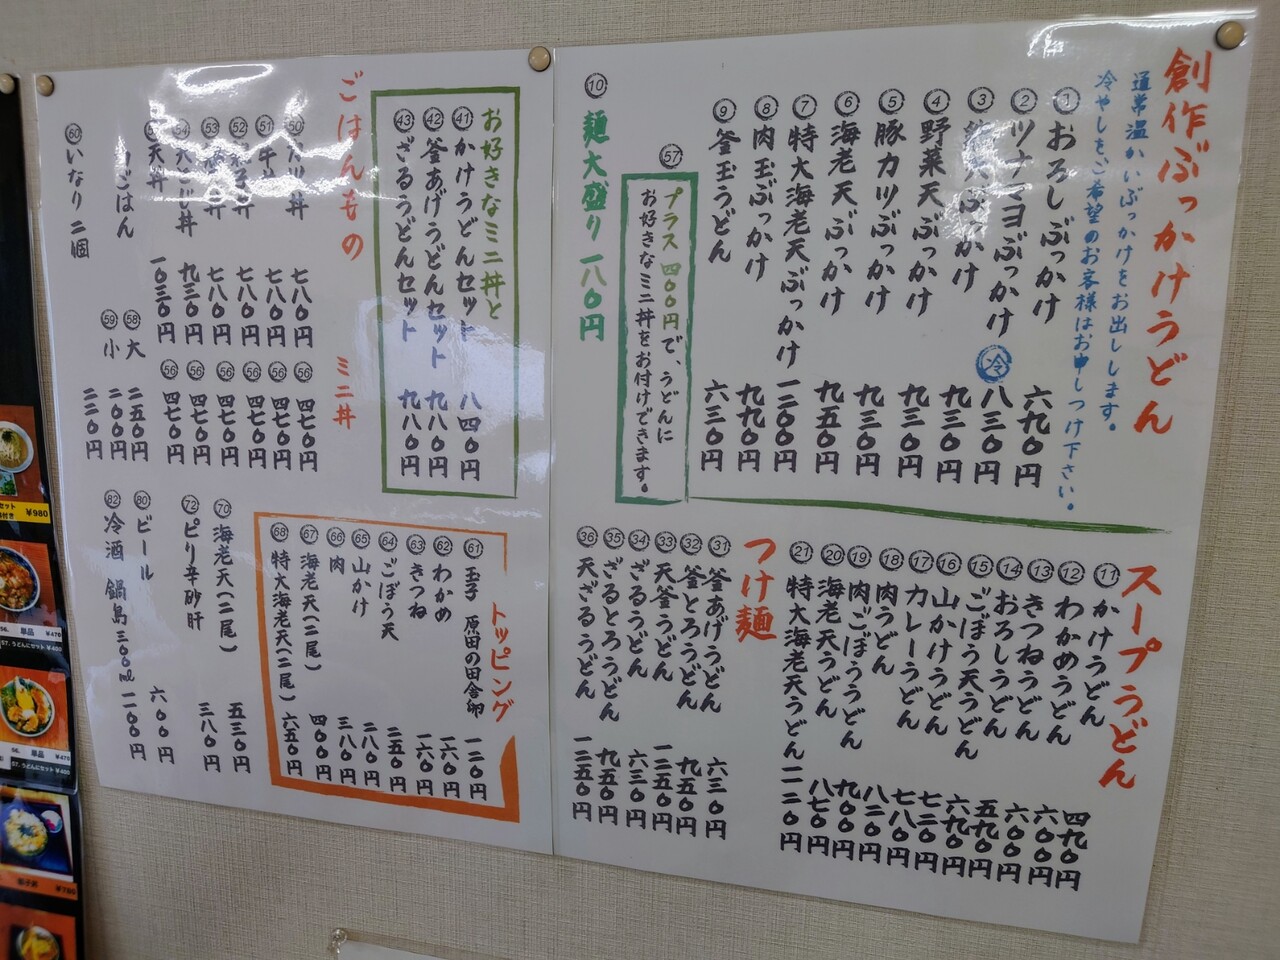 創作ぶっかけうどん
通常温かいぶっかけをお出しします。
冷やしをご希望のお客様はお申しつけ下さい。
① おろしぶっかけ 六九〇円
② ツナマヨぶっかけ 冷 八三〇円
③ ぶっかけ 九三〇円
④ 野菜天ぶっかけ 九三〇円
⑤ 豚カツぶっかけ 九三〇円
⑥ 海老天ぶっかけ 九五〇円
⑦ 特大海老天ぶっかけ 一二〇〇円
⑧ 肉玉ぶっかけ 九九〇円
⑨ 釜玉うどん 六三〇円
57 プラス四〇〇円で、うどんに
お好きなミニ丼をお付けできます。
⑩ 麺大盛り 一八〇円
スープうどん
11 かけうどん 四九〇円
12 わかめうどん 六〇〇円
13 きつねうどん 六〇〇円
14 おろしうどん 五九〇円
15 ごぼう天うどん 六九〇円
16 山かけうどん 七二〇円
17 カレーうどん 七八〇円
18 肉うどん 八二〇円
19 肉ごぼううどん 九〇〇円
20 海老天うどん 八七〇円
21 特大海老天うどん 一一二〇円
つけ麺
31 釜あげうどん 六三〇円
32 釜とろうどん 九五〇円
33 天釜うどん 一二五〇円
34 ざるうどん 六三〇円
35 ざるとろうどん 九五〇円
36 天ざるうどん 一二五〇円
お好きなミニ丼と
41 かけうどんセット 八四〇円
42 釜あげうどんセット 九八〇円
43 ざるうどんセット 九八〇円
ごはんもの
ミニ丼
50 丼 七八〇円 56 四七〇円
51 牛丼 七八〇円 56 四七〇円
52 七八〇円 56 四七〇円
53 丼 七八〇円 56 四七〇円
54 丼 九三〇円 56 四七〇円
天丼 一〇三〇円 56 四七〇円
ごはん
58 大 二五〇円
59 小 二〇〇円
60 いなり 二個 二二〇円
トッピング
61 玉子 原田の田舎卵 一二〇円
62 わかめ 一六〇円
63 きつね 一六〇円
64 ごぼう天 二五〇円
65 山かけ 二八〇円
66 肉 三八〇円
67 海老天(二尾) 四〇〇円
68 特大海老天(二尾) 六五〇円
70 海老天(二尾) 五三〇円
72 ピリ辛砂肝 三八〇円
80 ビール 六〇〇円
82 冷酒 鍋島三〇〇ml 一一〇〇円
セット
¥980
56. 単品 ¥470
57. うどんにセット ¥400
56. 単品 ¥470
57. うどんにセット ¥400
¥780